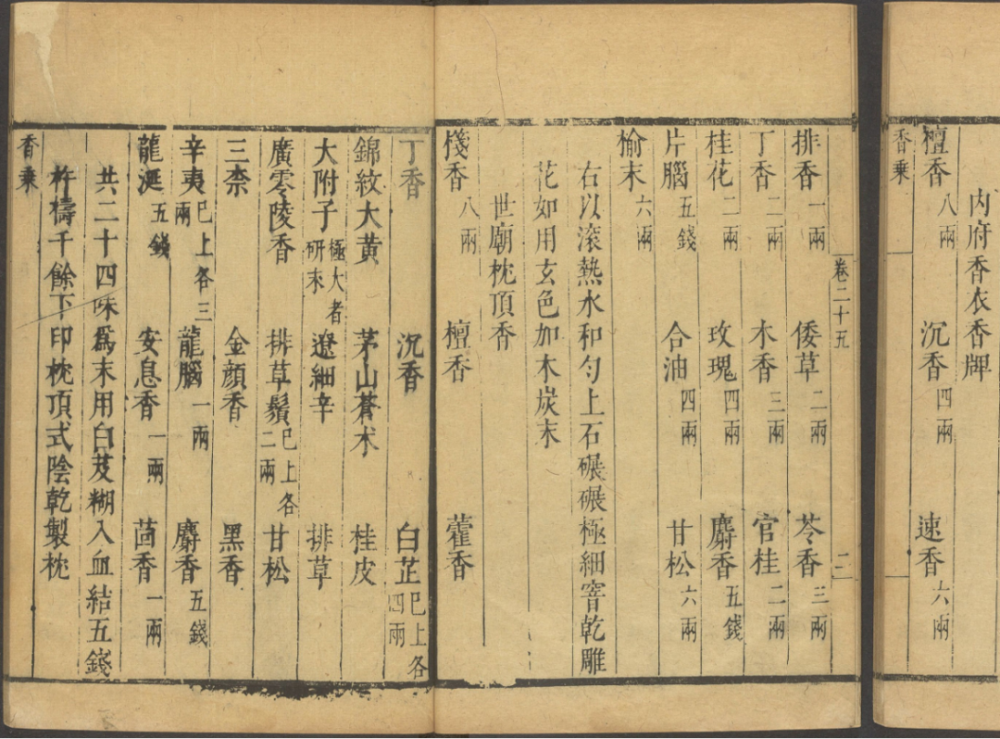 內府香衣香牌
檀香八兩 沉香四兩 速香六兩
香乘
卷二十五 二
排香一兩 倭草二兩 苓香三兩
丁香二兩 木香三兩 官桂二兩
桂花二兩 玫瑰四兩 麝香五錢
片腦五錢 合油四兩 甘松六兩
榆末六兩
右以滾熱水和勻上石碾碾極細窨乾雕
花如用玄色加木炭末
世廟枕頂香
棧香八兩 檀香 藿香
丁香 沉香 白芷已上各四兩
錦紋大黃 茅山蒼术 桂皮
大附子極大者研末 遼細辛 排草
廣零陵香 排草鬚已上各二兩 甘松
三柰 金顏香 黑香
辛夷已上各三兩 龍腦一兩 麝香五錢
龍涎五錢 安息香一兩 茴香一兩
共二十四味爲末用白芨糊入血結五錢
杵擣千餘下印枕頂式陰乾製枕
香乘